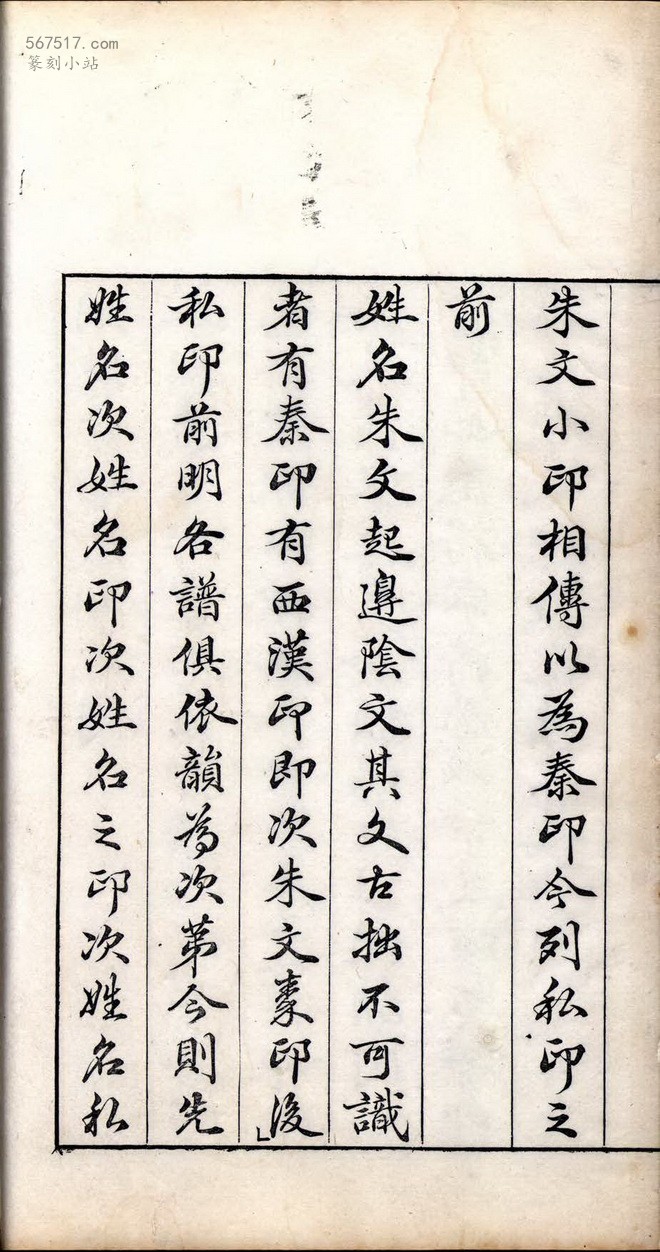 567517.com
篆刻小站
朱文小印相傳以為秦印今列私印之
前
姓名朱文起邊陰文其文古拙不可識
者有秦印有西漢印即次朱文秦印後
私印前明各譜俱依韻為次苐今則先
姓名次姓名印次姓名之印次姓名私